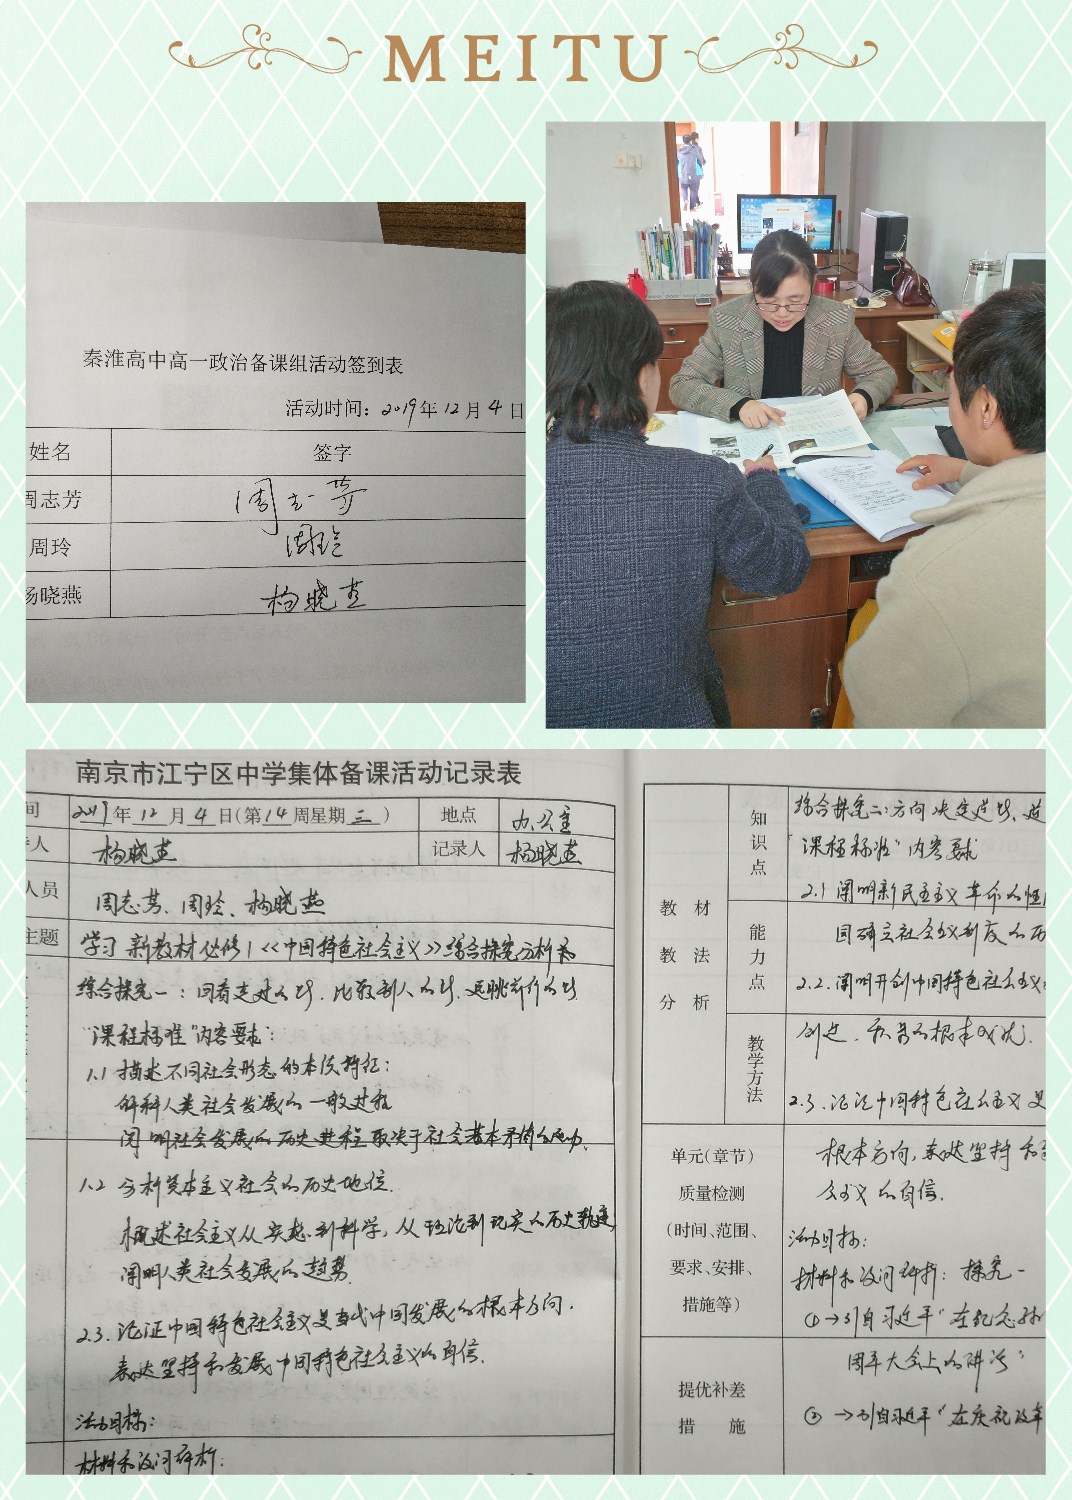 MEITU
秦淮高中高一政治备课组活动签到表
活动时间：2019年12月4日
姓名 签字
周志芳 周志芳
周玲 周玲
杨晓燕 杨晓燕
南京市江宁区中学集体备课活动记录表
间 2019年12月4日(第14周星期三) 地点 办公室
人 杨晓燕 记录人 杨晓燕
人员 周志芳、周玲、杨晓燕
主题 学习新教材必修1《中国特色社会主义》综合探究分析
综合探究一：回看走过的路、比较别人的路、远眺前行的路
"课程标准"内容要求：
1.1 描述不同社会形态的本质特征；
解释人类社会发展的一般过程
阐明社会发展的历史进程取决于社会基本矛盾的运动.
1.2 分析资本主义社会的历史地位.
概述社会主义从空想到科学，从理论到现实的历史轨迹，
阐明人类社会发展的趋势.
2.3. 论证中国特色社会主义是当代中国发展的根本方向.
表达坚持和发展中国特色社会主义的自信.
活动目标：
材料和设问辨析：
教材
教法
分析
知识点
综合探究二：方向决定道路、道
"课程标准"内容要求
2.1 阐明新民主主义革命的性
能力点
国确立社会主义制度的历
2.2. 阐明开创中国特色社会主义
教学方法
的根本成就.
2.3. 论证中国特色社会主义是
单元(章节)
质量检测
(时间、范围、
要求、安排、
措施等)
根本方向，表达坚持和
会主义的自信.
活动目标：
材料和设问辨析：探究一
①→引自习近平"在纪念孙
提优补差
措 施
周年大会上的讲话"
②→引自习近平"在庆祝改革